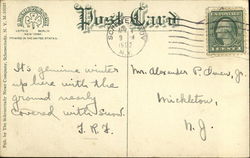 Post Card
LEIPZIG BERLIN
NEW YORK
Pub. by The Schenectady News Company, Schenectady, N. Y.
It's genuine winter
up here with the
ground nearly
covered with snow.
Mr. Alexander P. Owens, Jr.
Mickleton,
N. J.